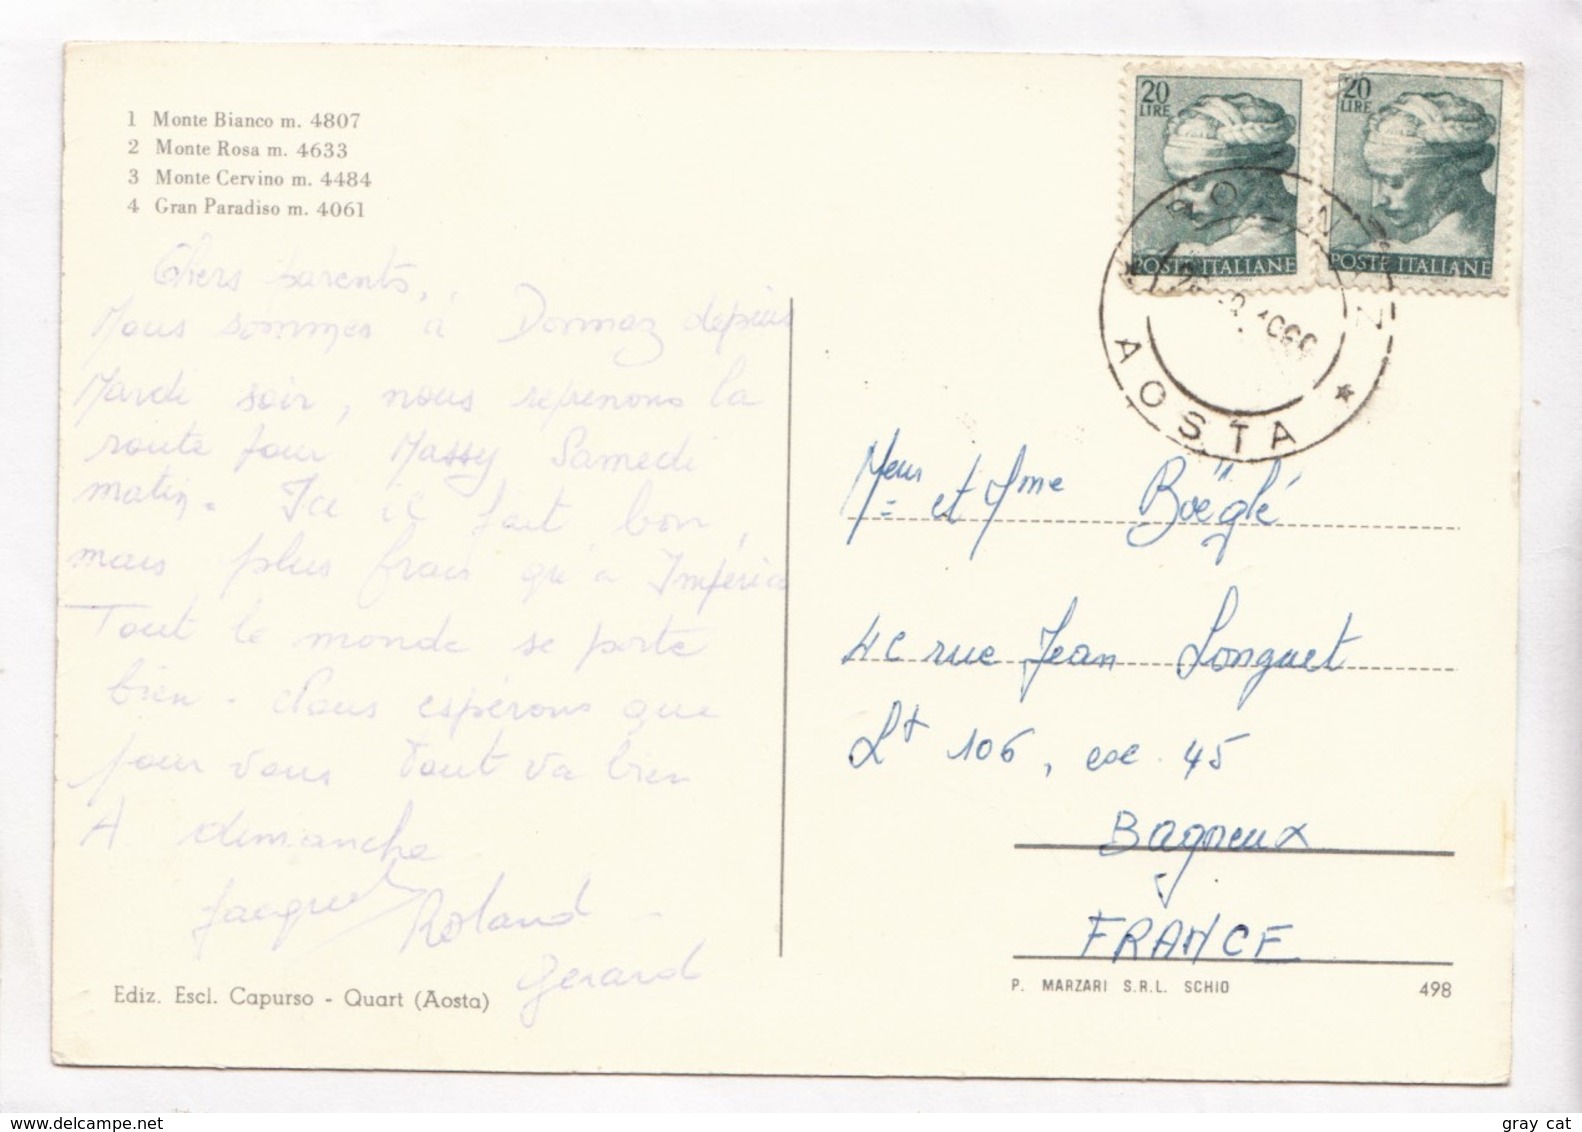 1 Monte Bianco m. 4807
2 Monte Rosa m. 4633
3 Monte Cervino m. 4484
4 Gran Paradiso m. 4061
Chers parents,
Nous sommes à Donnaz depuis
Mardi soir, nous reprenons la
route pour Massy Samedi
matin. Ici il fait bon,
mais plus frais qu'à Impéria
Tout le monde se porte
bien - Nous espérons que
pour vous tout va bien
A dimanche
Jacques Roland
Gérard
Ediz. Escl. Capurso - Quart (Aosta)
20 LIRE
POSTE ITALIANE
20 LIRE
POSTE ITALIANE
AOSTA
Meur et Mme Boëglé
4C rue Jean Longuet
Lt 106, esc. 45
Bagneux
FRANCE
P. MARZARI S.R.L. SCHIO 498
www.delcampe.net
gray cat